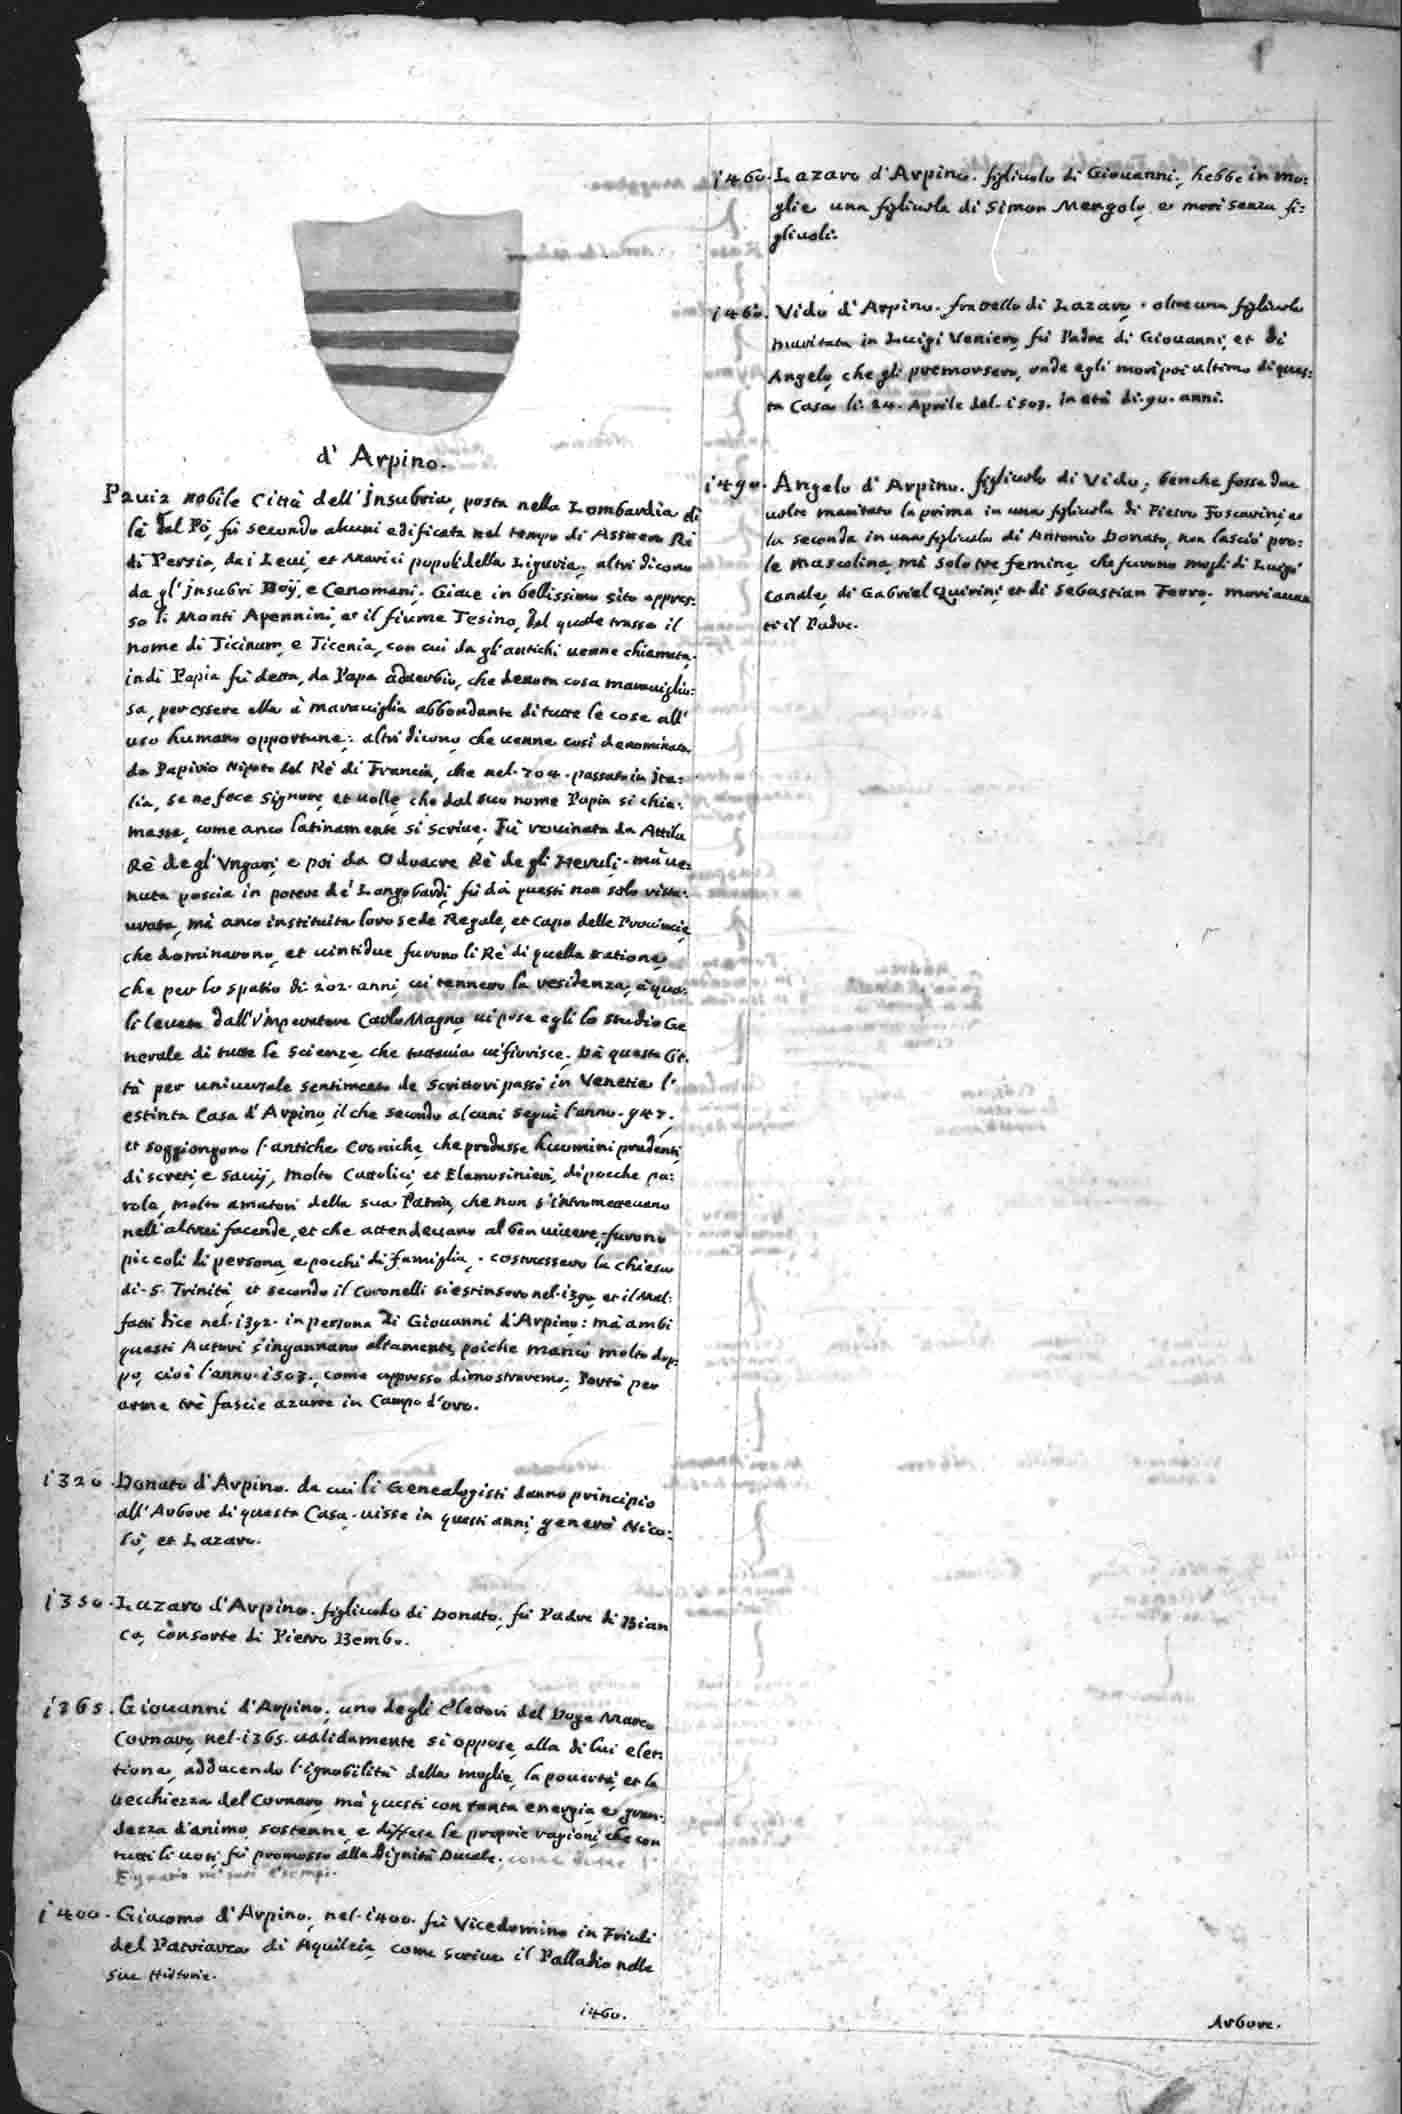 d' Arpino.
Pavia nobile Città dell'Insubria, posta nella Lombardia di
là dal Pò, fù secondo alcuni edificata nel tempo di Assuero Rè
di Persia, da i Levi, et Anarici popoli della Liguria, altri dicono
da gl'Insubri Boÿ, e Cenomani. Giace in bellissimo sito appres:
so li Monti Apennini, et il fiume Tesino, dal quale trasse il
nome di Ticinum, e Ticenia, con cui da gl'antichi uenne chiamata.
indi Papia fù detta, da Papa adverbio, che denota cosa marauiglio:
sa, per essere ella à marauiglia abbondante di tutte le cose all'
uso humano opportune: altri dicono, che uenne così denominata
da Papirio Nipote del Rè di Francia, che nel. 704. passato in Ita:
lia, se ne fece Signore, et uolle, che dal suo nome Papia si chia:
masse, come anco latinamente si scriue. Fù rouinata da Attila
Rè degl'Vngari, e poi da Odoacre Rè de gli Heruli. mà ue:
nuta poscia in potere de' Longobardi, fù da questi non solo ristau:
urata, mà anco instituita loro sede Regale, et Capo delle Prouincie,
che dominarono, et uintidue furono li Rè di quella natione,
che per lo spatio di 202. anni, ui tennero la residenza, à qua:
li leuata dall'Imperatore Carlo Magno, ui pose egli lo studio Ge
nerale di tutte le scienze, che tuttauia ui fiorisce. Da questa Cit:
tà per uniuersale sentimento de Scrittori passò in Venetia l'
estinta Casa d'Arpino, il che secondo alcuni seguì l'anno. 947.
et soggiongono l'antiche Croniche, che produsse huomini prudenti,
discreti, e sauij, molto Cattolici, et Elemosinieri, di poche pa:
role, molto amatori della sua Patria, che non s'intrometteuano
nell'altrui facende, et che attendeuano al ben uiuere, furono
piccoli di persona, e pochi di famiglia. costrussero la chiesa
di. S. Trinità, et secondo il Coronelli si estinsero nel. 1390, et il Mal:
fatti dice nel. 1392. in persona di Giouanni d'Arpino: mà ambi
questi Autori s'ingannano altamente, poiche mancò molto dop:
po, cioè l'anno. 1503., come appresso dimostraremo. Portò per
arme trè fascie azurre in Campo d'oro.
1320. Donato d'Arpino. da cui li Genealogisti danno principio
all'Arbore di questa Casa. uisse in questi anni, generò Nico:
lò, et Lazaro.
1350. Lazaro d'Arpino. figliuolo di Donato, fù Padre di Bian
ca, consorte di Pietro Bembo.
1365. Giouanni d'Arpino, uno degli Elettori del Doge Marco
Cornaro, nel. 1365. ualidamente si oppose, alla di lui elet:
tione, adducendo l'ignobilità della moglie, la pouertà, et la
uecchiezza del Cornaro, mà questi con tanta energia, e gran:
dezza d'animo, sostenne, e diffese le proprie ragioni, che con
tutti li uoti, fù promosso alla Dignità Ducale. come l'
Egnatio ne' suoi Esempi.
1400. Giacomo d'Arpino, nel. 1400. fù Vicedomino in Friuli
del Patriarca di Aquileia, come scriue il Palladio nelle
sue Historie.
1460.
1460. Lazaro d'Arpino. figliuolo di Giouanni, hebbe in mo:
glie una figliuola di Simon Mengolo, e morì senza fi:
gliuoli.
1460. Vido d'Arpino. fratello di Lazaro. oltre una figliuola
maritata in Luigi Veniero, fù Padre di Giouanni, et di
Angelo, che gli premorsero, onde egli morì poi ultimo di ques:
ta Casa li. 24. Aprile del. 1503. in età di. 90. anni.
1490. Angelo d'Arpino. figliuolo di Vido; benche fosse due
uolte maritato la prima in una figliuola di Pietro Foscarini, e
la seconda in una figliuola di Antonio Donato, non lasciò pro:
le mascolina, mà solo tre femine, che furono mogli di Luigi
Canale, di Gabriel Quirini, et di Sebastian Ferro. morì auan
ti il Padre.
Arbore.